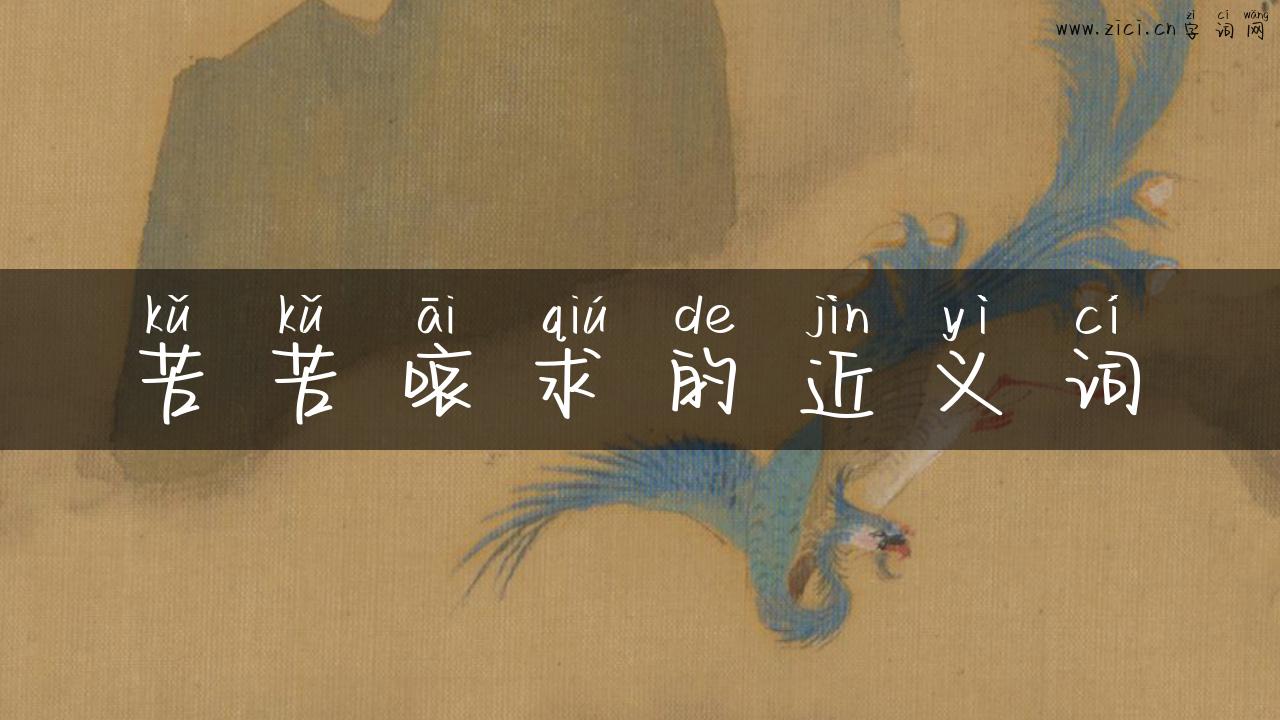 zì cí wǎng
www.zici.cn字词网
kǔ kǔ āi qiú de jìn yì cí
苦苦哀求的近义词